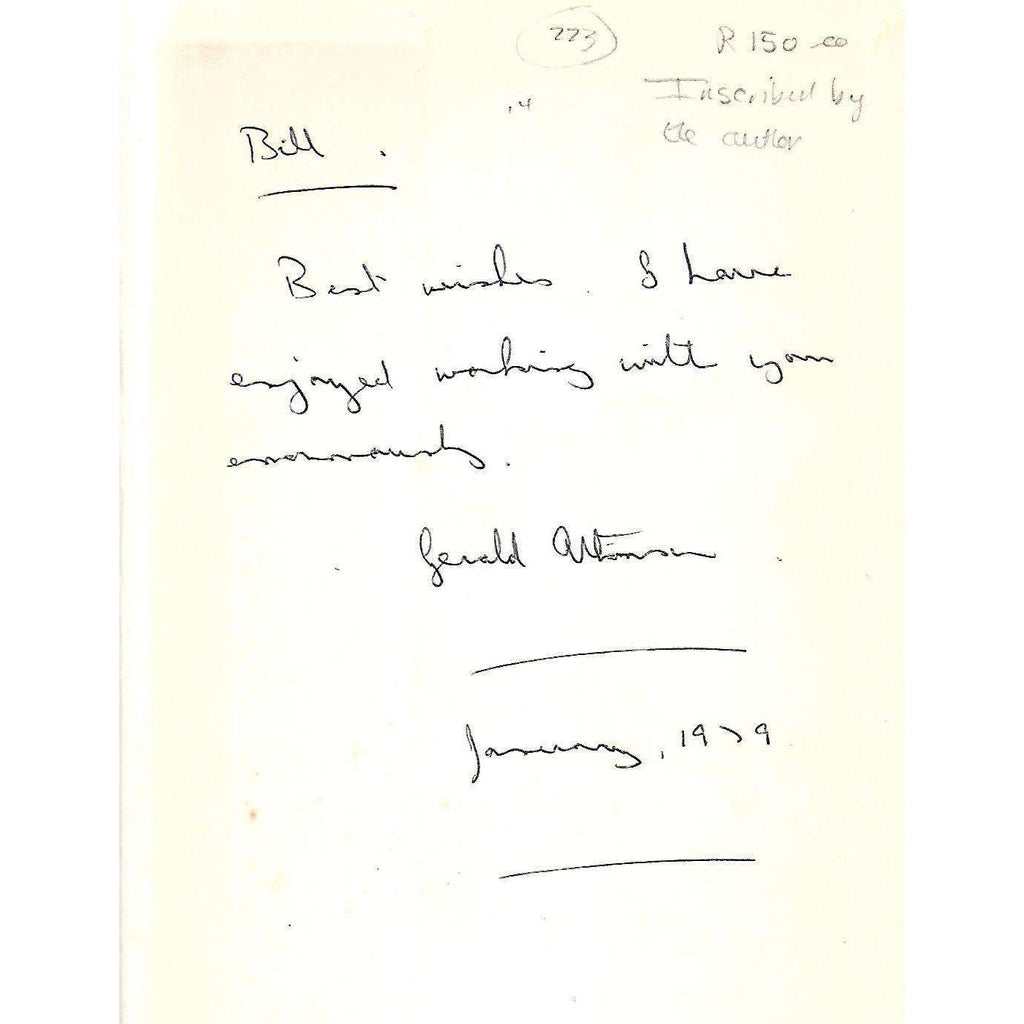 223
R150-00
Inscribed by
the author
Bill.
Best wishes. I have
enjoyed working with you
enormously.
Gerald Atkinson
January, 1979